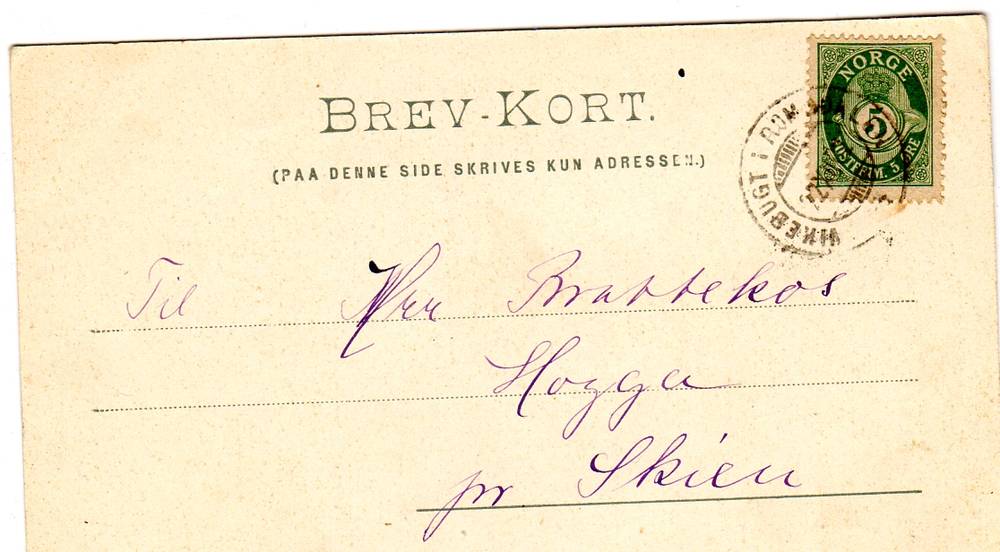 NORGE
5
POSTFRIM. 5 ØRE
VIKEBUGT I ROM
BREV-KORT.
(PAA DENNE SIDE SKRIVES KUN ADRESSEN.)
Til Herr Brattekos
Hogga
pr Skien